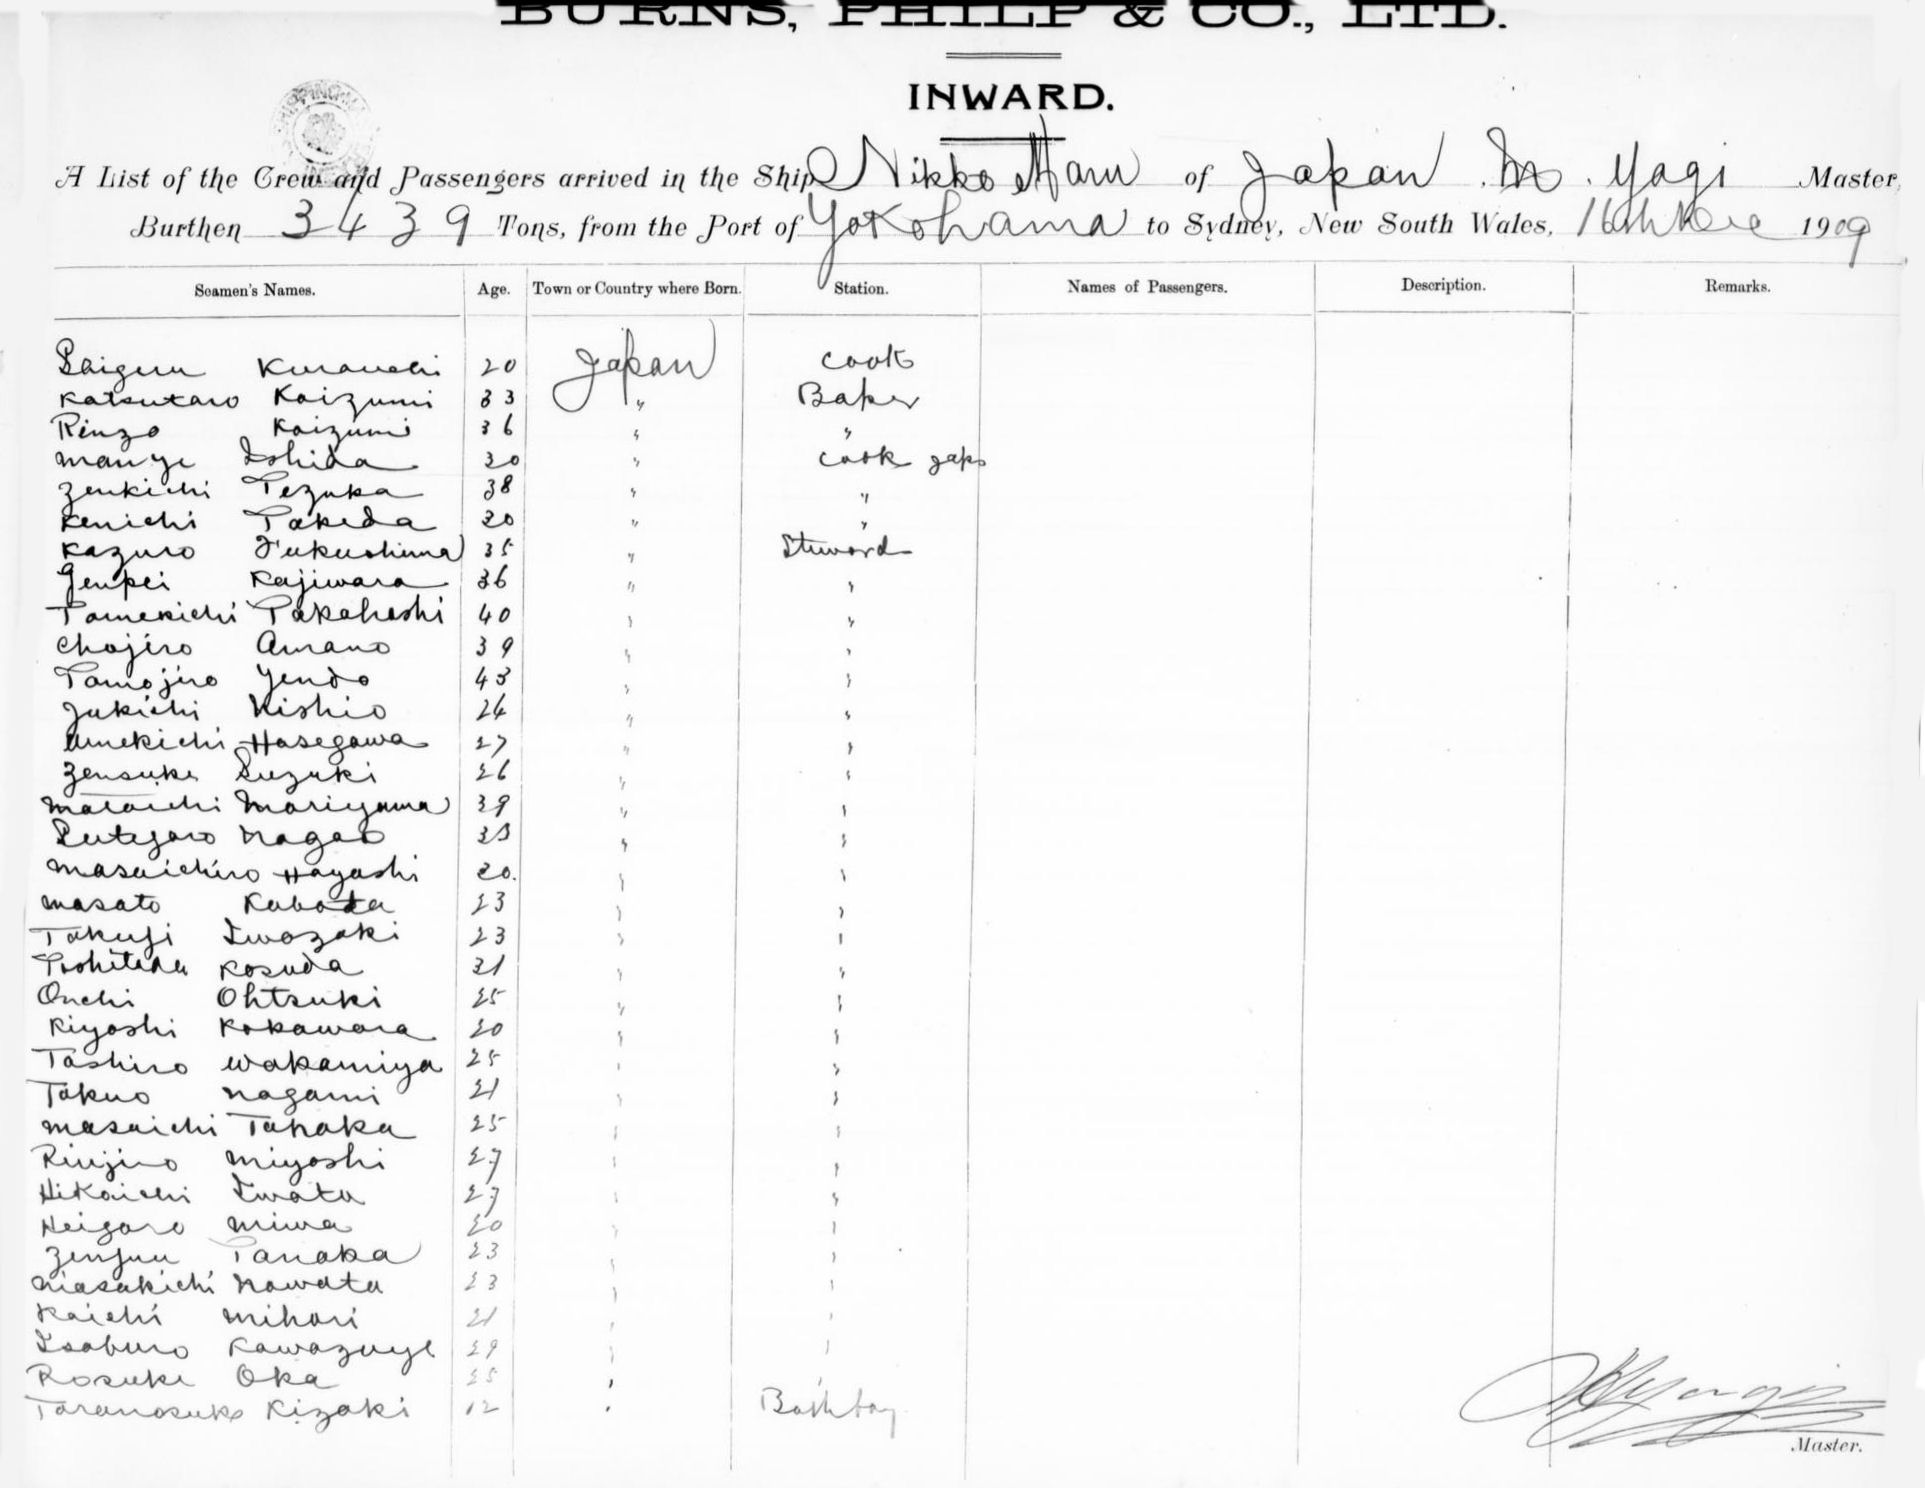 BURNS, PHILP & CO., LTD.
INWARD.
A List of the Crew and Passengers arrived in the Ship Nikko Maru of Japan, M. Yagi Master,
Burthen 3439 Tons, from the Port of Yokohama to Sydney, New South Wales, 16th Dec 1909
Seamen's Names. Age. Town or Country where Born. Station. Names of Passengers. Description. Remarks.
Shigeru Kurauchi 20 Japan Cook
Katsutaro Koizumi 33 " Baker
Rinzo Koizumi 36 " "
Manye Ishida 30 " Cook Japs
Zenkichi Tezuka 38 " "
Kenichi Takeda 20 " "
Kazuro Fukushima 35 " Steward
Genpei Kajiwara 36 " "
Tomekichi Takahashi 40 " "
Chojiro Amano 39 " "
Tomojiro Yendo 43 " "
Jukichi Nishio 24 " "
Umekichi Hasegawa 27 " "
Zensuke Suzuki 26 " "
Mataichi Moriyama 39 " "
Nagao 33 " "
Masaichiro Hayashi 20. " "
Masato Kubota 23 " "
Takuji Iwazaki 23 " "
Kosuda 31 " "
Onchi Ohtsuki 25 " "
Kiyoshi Kokawara 20 " "
Toshiro Wakamiya 25 " "
Takuo Nagami 21 " "
Masaichi Tanaka 25 " "
Rinjiro Miyoshi 27 " "
Hikaichi Iwata 27 " "
Heigoro Miwa 20 " "
Tanaka 23 " "
Masakichi Nawata 23 " "
Kaichi Mihori 21 " "
Isaburo Kawazuye 29 " "
Rosuke Oka 25 " "
Taranosuke Kizaki 12 " Bathboy
Master.